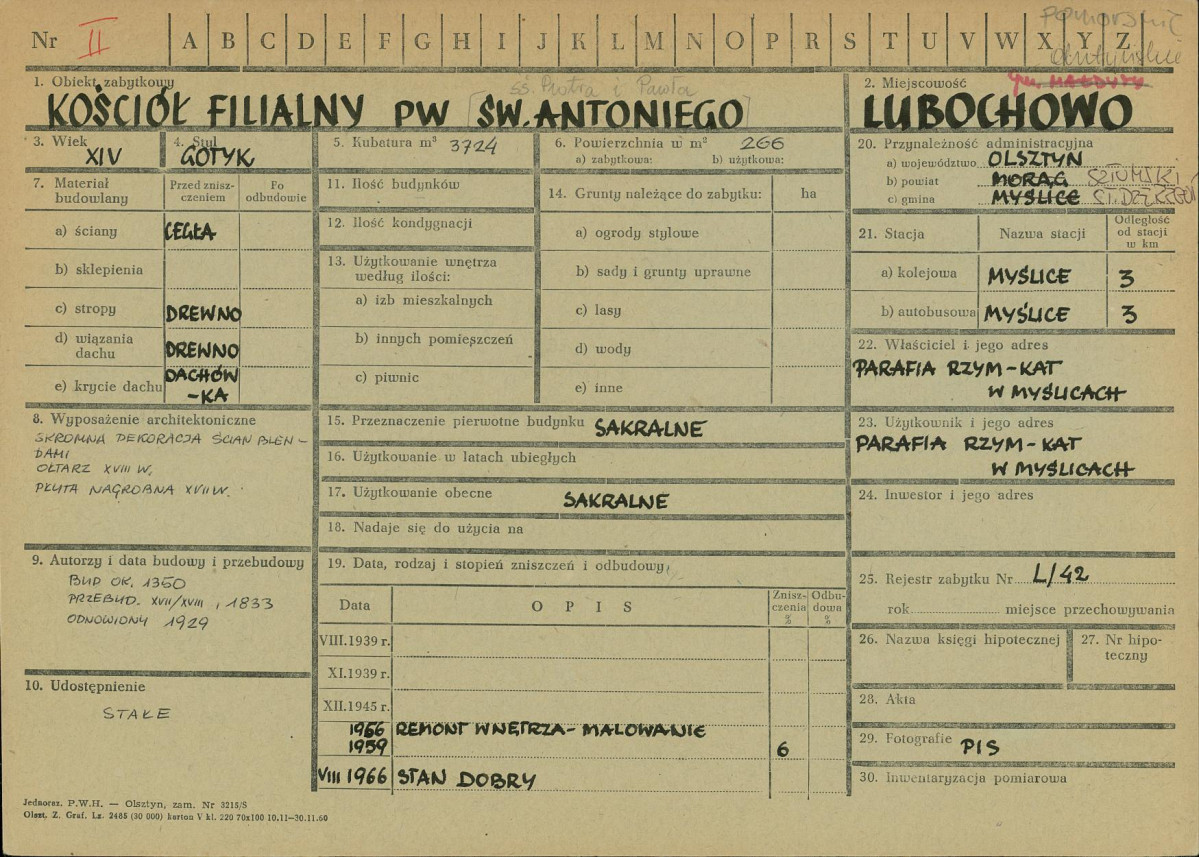 Nr II A B C D E F G H I J K L M N O P R S T U V W X Y Z
pomorskie
olsztyńskie
1. Obiekt zabytkowy
śś. Piotra i Pawła
KOŚCIÓŁ FILIALNY PW [ŚW. ANTONIEGO]
2. Miejscowość
gm. MAŁDYTY
LUBOCHOWO
3. Wiek
XIV
4. Styl
GOTYK
5. Kubatura m³ 3724
6. Powierzchnia w m² 266
a) zabytkowa: b) użytkowa:
7. Materiał budowlany
Przed znisz-
czeniem
Po
odbudowie
a) ściany CEGŁA
b) sklepienia
c) stropy DREWNO
d) wiązania
dachu DREWNO
e) krycie dachu DACHÓW
-KA
8. Wyposażenie architektoniczne
SKROMNA DEKORACJA ŚCIAN BLEN-
DAMI
OŁTARZ XVIII W.
PŁYTA NAGROBNA XVII W.
9. Autorzy i data budowy i przebudowy
BUD OK. 1350
PRZEBUD. XVII/XVIII, 1833
ODNOWIONY 1929
10. Udostępnienie
STAŁE
11. Ilość budynków
12. Ilość kondygnacji
13. Użytkowanie wnętrza
według ilości:
a) izb mieszkalnych
b) innych pomieszczeń
c) piwnic
14. Grunty należące do zabytku: ha
a) ogrody stylowe
b) sady i grunty uprawne
c) lasy
d) wody
e) inne
15. Przeznaczenie pierwotne budynku SAKRALNE
16. Użytkowanie w latach ubiegłych
17. Użytkowanie obecne SAKRALNE
18. Nadaje się do użycia na
19. Data, rodzaj i stopień zniszczeń i odbudowy
Data
O P I S
Znisz-
czenia
%
Odbu-
dowa
%
VIII.1939 r.
XI.1939 r.
XII.1945 r.
1966 REMONT WNĘTRZA - MALOWANIE
1959 6
VIII 1966 STAN DOBRY
20. Przynależność administracyjna
a) województwo OLSZTYN
b) powiat MORĄG SZTUMSKI
c) gmina MYŚLICE ST. DZIERZGOŃ
21. Stacja
Nazwa stacji
Odległość
od stacji
w km
a) kolejowa MYŚLICE 3
b) autobusowa MYŚLICE 3
22. Właściciel i jego adres
PARAFIA RZYM-KAT
W MYŚLICACH
23. Użytkownik i jego adres
PARAFIA RZYM-KAT
W MYŚLICACH
24. Inwestor i jego adres
25. Rejestr zabytku Nr L/42
rok miejsce przechowywania
26. Nazwa księgi hipotecznej
27. Nr hipo-
teczny
28. Akta
29. Fotografie PIS
30. Inwentaryzacja pomiarowa
Jednoraz. P.W.H. — Olsztyn, zam. Nr 3215/S
Olszt. Z. Graf. Lz. 2485 (30 000) karton V kl. 220 70x100 10.11—30.11.60